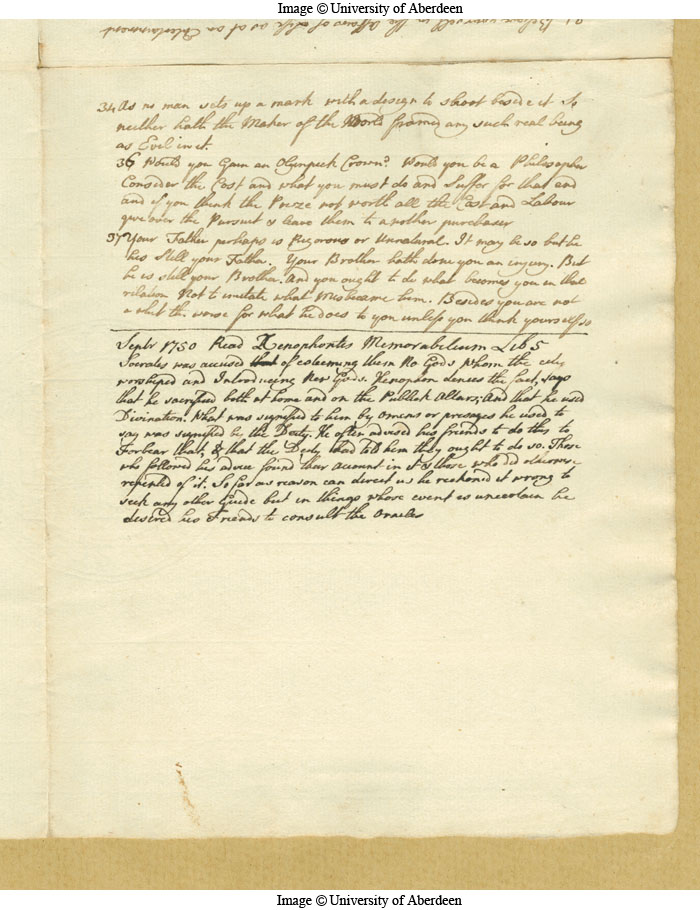 Image © University of Aberdeen
21 Behave yourself in the Affairs of Life as at an Entertainment
34 As no man sets up a mark with a design to shoot beside it So
neither hath the Maker of the World framed any such real being
as Evil in it.
36 Would you Gain an Olympick Crown? Would you be a Philosopher
Consider the Cost and what you must do and Suffer for that end
and if you think the Prize not worth all the Cost and Labour
give over the Pursuit & leave them to another purchaser
37 Your Father perhaps is Rigorous or Unnatural. It may be so but he
his Still your Father. Your Brother hath done you an injury. But
he is still your Brother. And you ought to do what becomes you in that
relation Not to imitate what Misbecame him. Besides you are not
a whit the worse for what he does to you unless you think yourself so
Septr 1750 Read Xenophontis Memorabilium Lib 5
Socrates was accused of esteeming them No Gods whom the city
worshiped and Introducing New Gods. Xenophon denies the fact, says
that he sacrificed both at home and on the Publick Altars; And that he used
Divination. What was signified to him by Omens or presages he used to
say was signified by the Deity. He often advised his friends to do this to
Forbear that, & that the Deity had told him they ought to do so. Those
who followed his advice found their account in it & those who did otherwise
repented of it. So far as reason can direct us he reckoned it wrong to
seek any other Guide but in things whose event is uncertain he
desired his Friends to consult the Oracles
Image © University of Aberdeen